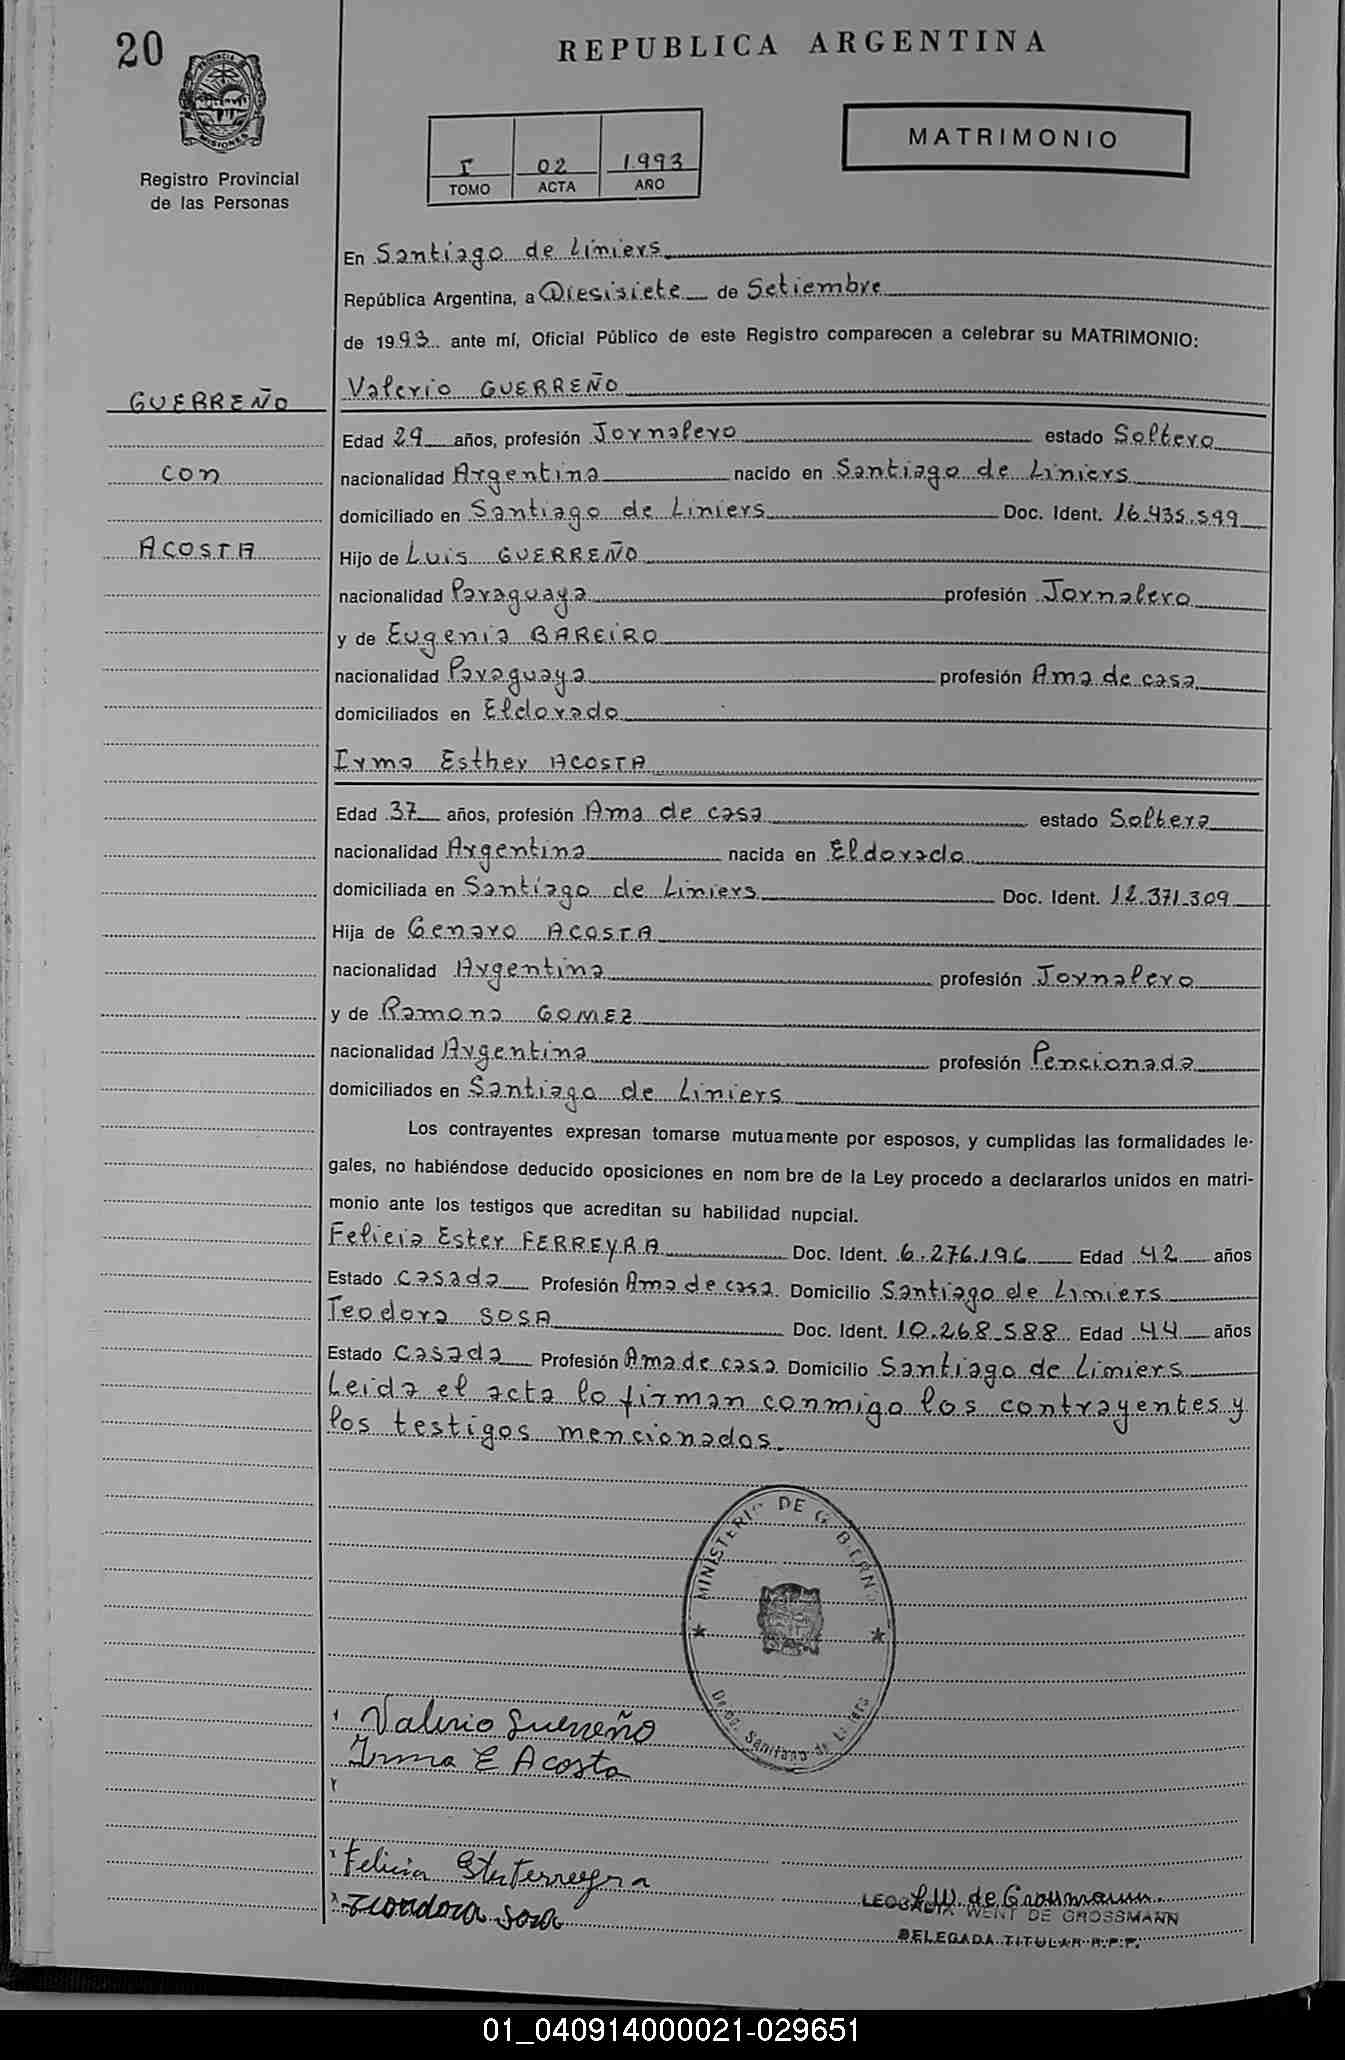 20
REPUBLICA ARGENTINA
PROVINCIA DE
MISIONES
Registro Provincial
de las Personas
I 02 1.993
TOMO ACTA AÑO
MATRIMONIO
En Santiago de Liniers
República Argentina, a Diesisiete de Setiembre
de 1993 ante mí, Oficial Público de este Registro comparecen a celebrar su MATRIMONIO:
GUERREÑO
con
ACOSTA
Valerio GUERREÑO
Edad 29 años, profesión Jornalero estado Soltero
nacionalidad Argentina nacido en Santiago de Liniers
domiciliado en Santiago de Liniers Doc. Ident. 16.435.599
Hijo de Luis GUERREÑO
nacionalidad Paraguaya profesión Jornalero
y de Eugenia BAREIRO
nacionalidad Paraguaya profesión Ama de casa
domiciliados en Eldorado
Irma Esther ACOSTA
Edad 37 años, profesión Ama de casa estado Soltera
nacionalidad Argentina nacida en Eldorado
domiciliada en Santiago de Liniers Doc. Ident. 12.371.309
Hija de Genaro ACOSTA
nacionalidad Argentina profesión Jornalero
y de Ramona GOMEZ
nacionalidad Argentina profesión Pencionada
domiciliados en Santiago de Liniers
Los contrayentes expresan tomarse mutuamente por esposos, y cumplidas las formalidades le-
gales, no habiéndose deducido oposiciones en nom bre de la Ley procedo a declararlos unidos en matri-
monio ante los testigos que acreditan su habilidad nupcial.
Felicia Ester FERREYRA Doc. Ident. 6.276.196 Edad 42 años
Estado Casada Profesión Ama de casa Domicilio Santiago de Liniers
Teodora SOSA Doc. Ident. 10.268.588 Edad 44 años
Estado Casada Profesión Ama de casa Domicilio Santiago de Liniers
Leida el acta lo firman conmigo los contrayentes y
los testigos mencionados.
MINISTERIO DE GOBIERNO
Valerio Guerreño
Irma E Acosta
Felicia Ester Ferreyra
Teodora Sosa
L.W. de Grossmann
WENT DE GROSSMANN
DELEGADA TITULAR R.P.P.
01_040914000021-029651